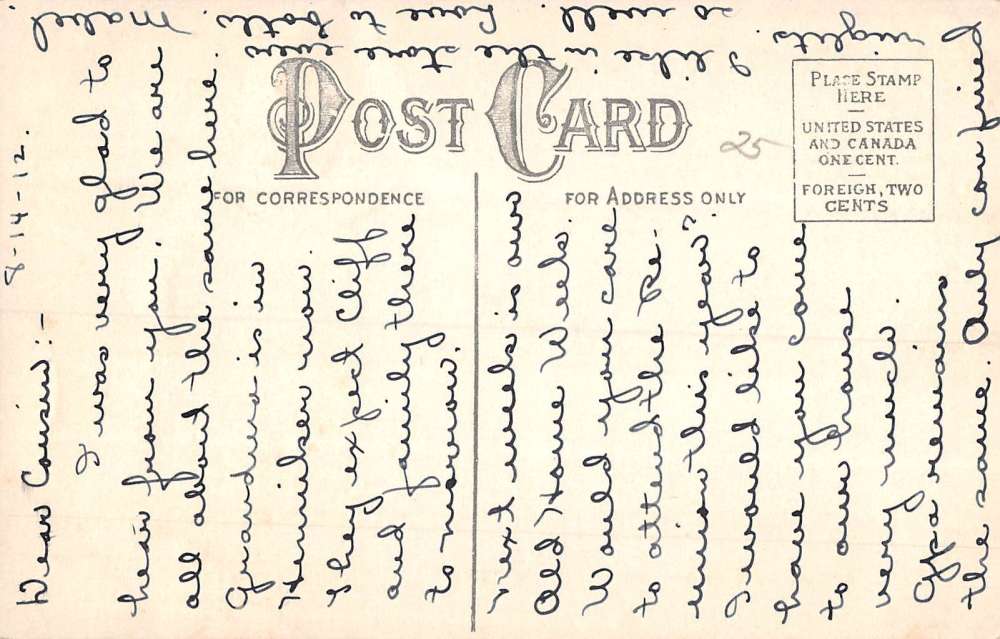 8-14-12.
Dear Cousin :-
I was very glad to
hear from you. We are
all about the same here.
Grandma is in
Henniker now.
They expect Cliff
and family there
to-morrow.
Next week is our
Old Home Week.
Would you care
to attend the Re-
union this year?
I would like to
have you come
to our house
very much.
Gpa remains
the same. Only confined
nights.
I like in the store even
so well. Love to both.
Mabel
POST CARD
FOR CORRESPONDENCE
FOR ADDRESS ONLY
PLACE STAMP
HERE
UNITED STATES
AND CANADA
ONE CENT.
FOREIGN, TWO
CENTS
25